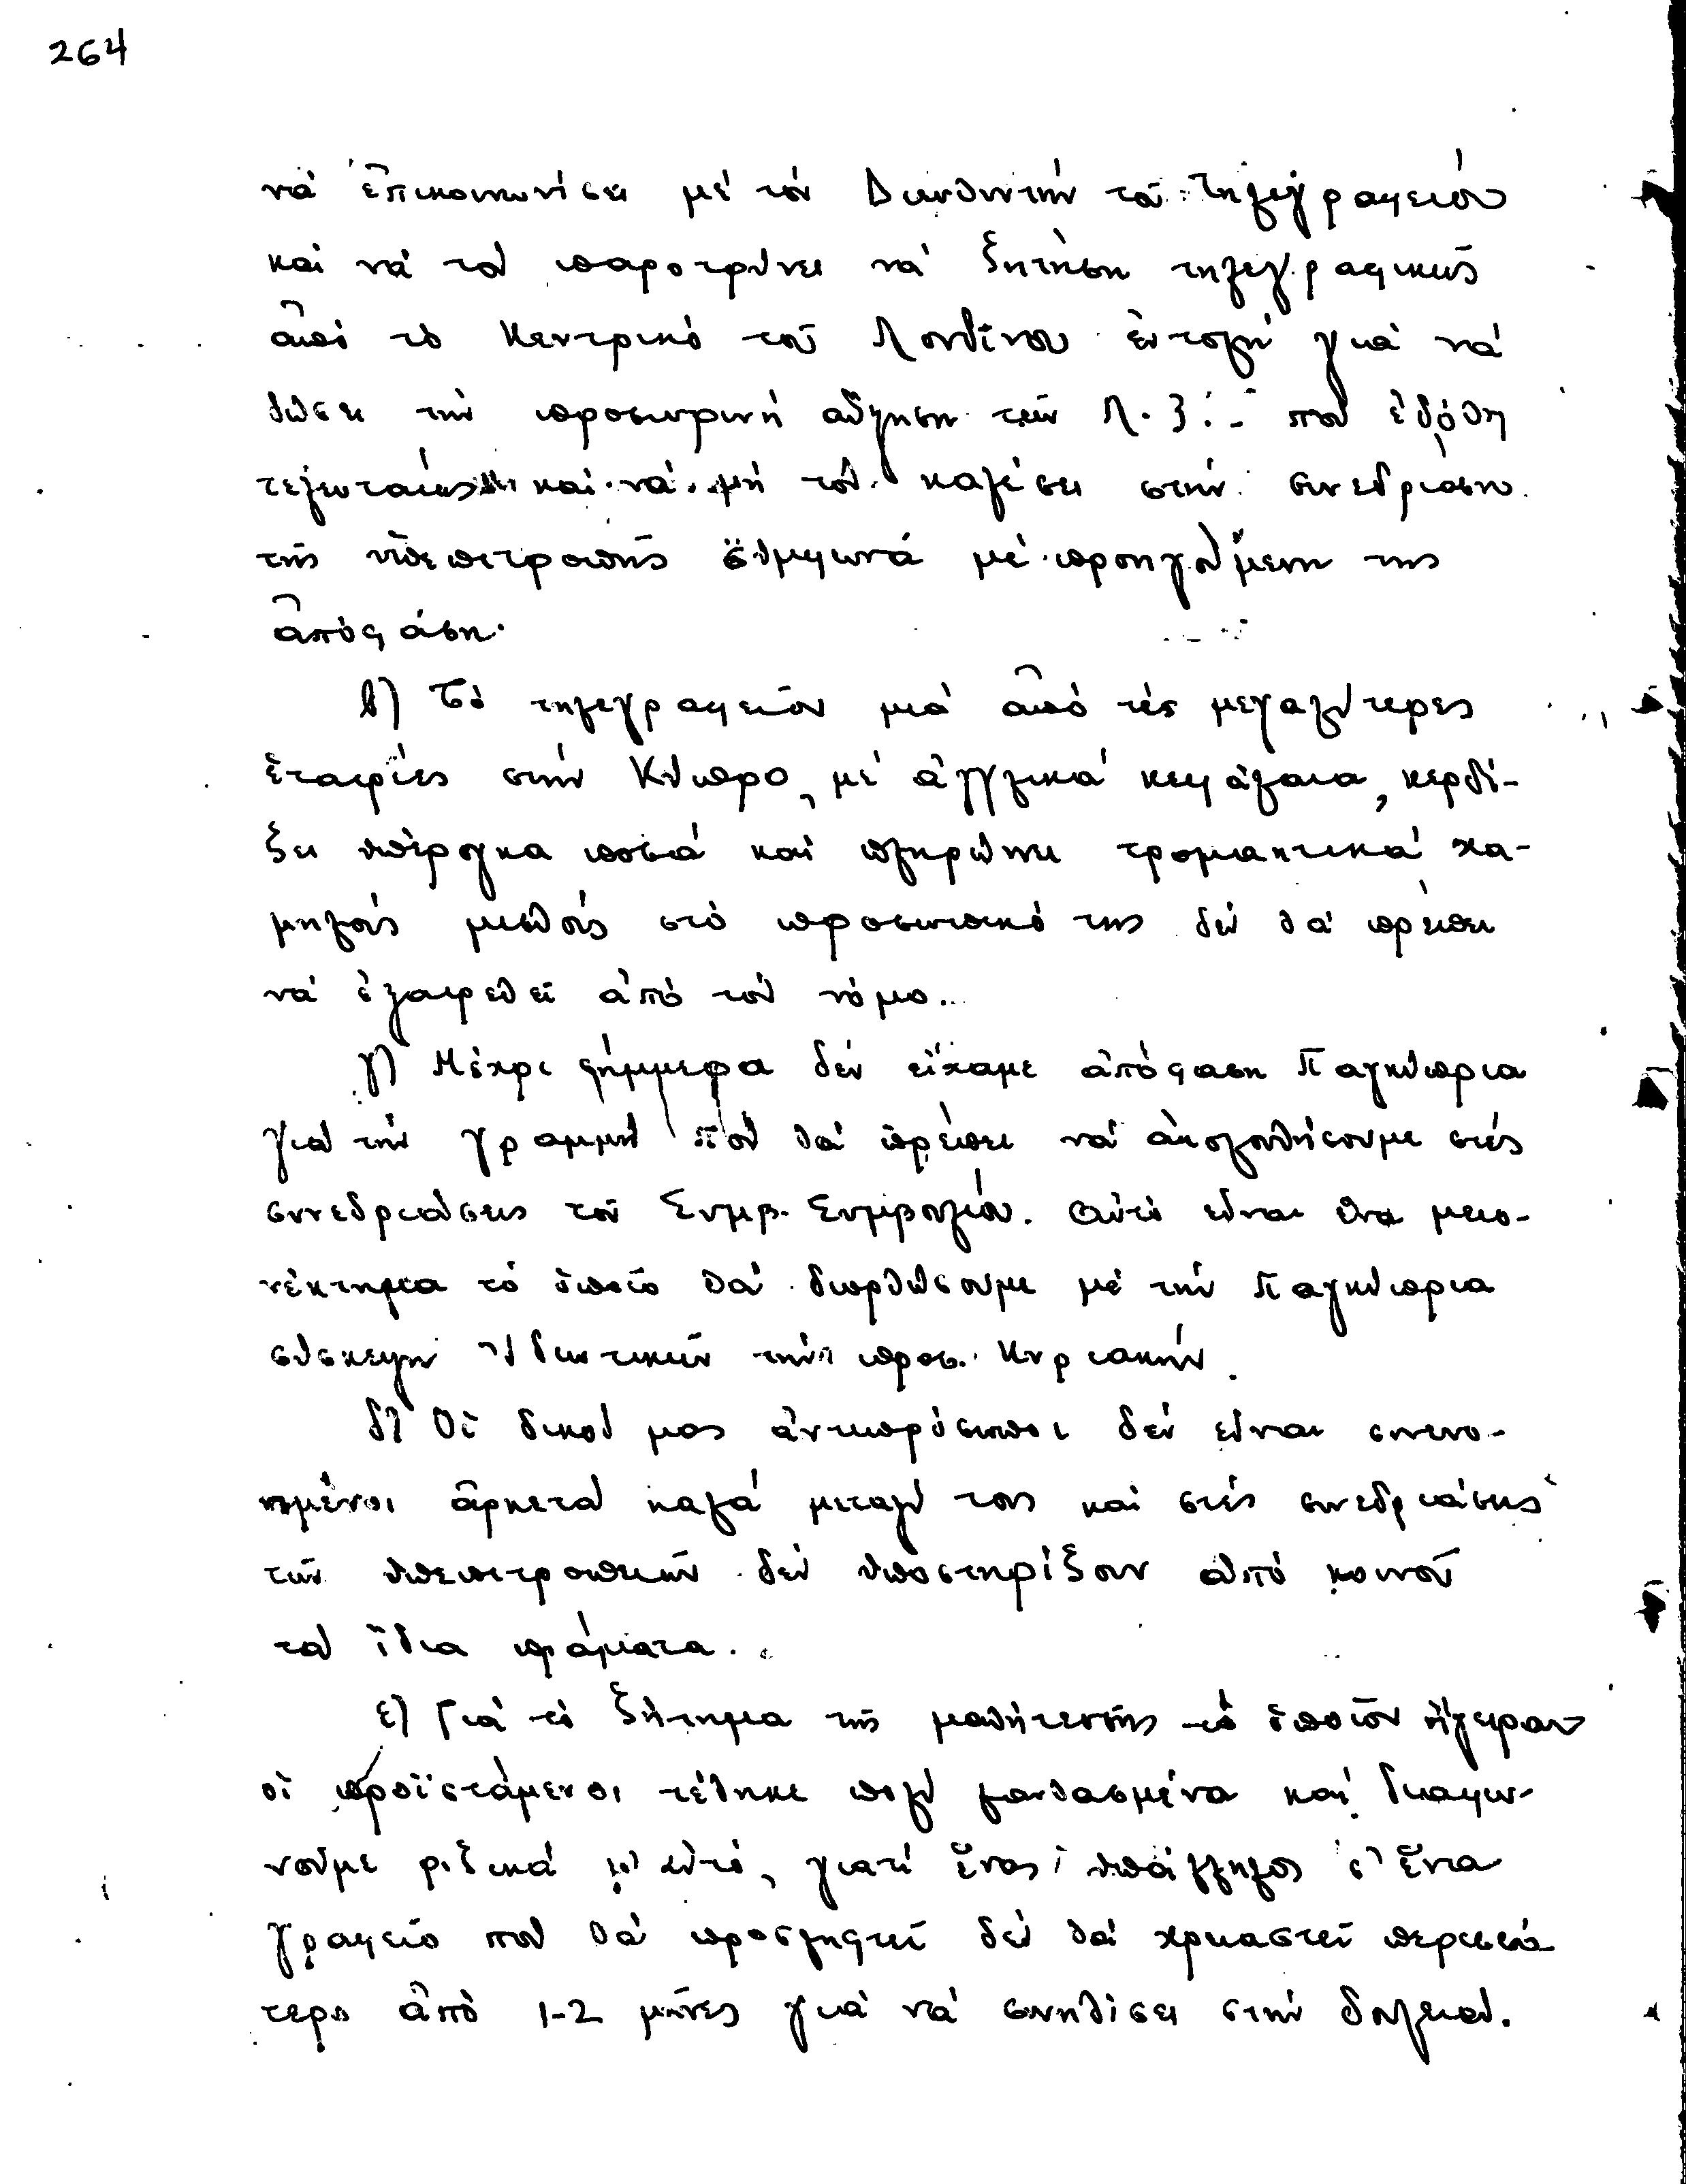 264
νά ἐπικοινωνήσει μέ τόν Διευθυντήν τοῦ Τηλεγραφείου
καί νά τόν παροτρύνει νά ζητήση τηλεγραφικῶς
ἀπό τό Κεντρικό τοῦ Λονδίνου ἐντολή γιά νά
δώσει τήν προσωρινή αὔξηση τῶν Λ.3.- πού ἐδόθη
τελευταίως καί νά μή τόν καλέσει στήν συνεδρίαση
τῆς ὑπεπιτροπῆς σύμφωνά μέ προηγούμενη της
ἀπόφάση.
β) Τό τηλεγραφεῖον μιά ἀπό τές μεγαλύτερες
ἑταιρίες στήν Κύπρο, μέ ἀγγλικά κεφάλαια, κερδί-
ζει ὑπέρογκα ποσά καί πληρώνει τρομακτικά χα-
μηλούς μισθούς στό προσωπικό της δέν θά πρέπει
νά ἐξαιρεθεῖ ἀπό τόν νόμο..
γ) Μέχρι σήμμερα δέν εἴχαμε ἀπόφαση Παγκύπρια
γιά τήν γραμμή πού θά πρέπει νά ἀκολουθήσουμε στές
συνεδριάσεις τοῦ Συμβ. Συμβουλίου. Αὐτό εἶναι ἕνα μειο-
νέκτημα τό ὁποῖο θά διορθώσουμε μέ τήν Παγκύπρια
σύσκεψη Ἰδιωτικῶν τήν προσ. Κυριακήν.
δ) Οἱ δικοί μας ἀντιπρόσωποι δέν εἶναι συνενο-
ημένοι ἀρκετά καλά μεταξύ τους καί στές συνεδριάσεις
τῶν ὑπεπιτροπειῶν δέν ὑποστηρίζουν ἀπό κοινοῦ
τά ἴδια πράματα.
ε) Γιά τό ζήτημα τῆς μαθήτευσης τό ὁποῖον ἤγειραν
οἱ προϊστάμενοι τέθηκε πολύ λανθασμένα καί διαφω-
νοῦμε ριζικά μ' αὐτό, γιατί ἕνας ὑπάλληλος σ' ἕνα
γραφεῖο πού θά προσληφτεῖ δέν θά χρειαστεῖ περισσό
τερο ἀπό 1-2 μῆνες γιά νά συνηθίσει στήν δουλειά.